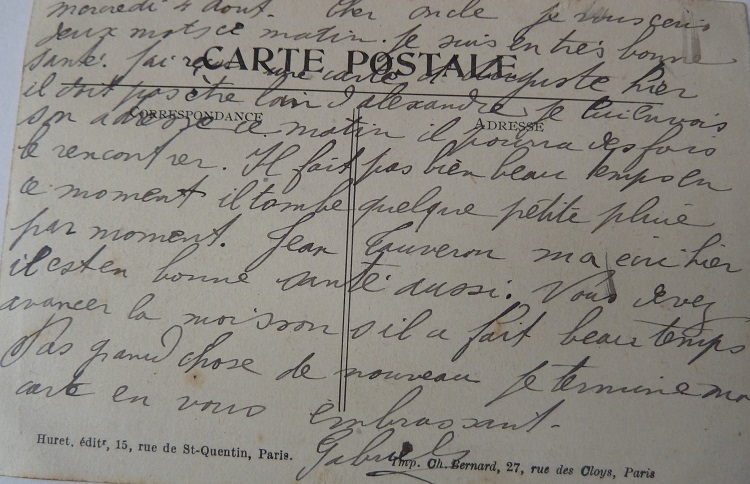 mercredi 4 aout. Cher oncle je vous écris
deux mots ce matin. Je suis en très bonne
santé. J'ai reçu une carte d'Auguste hier
CARTE POSTALE
il doit pas être loin d'alexandre, je lui envois
CORRESPONDANCE
ADRESSE
son adresse ce matin il pourra des fois
le rencontrer. Il fait pas bien beau temps en
ce moment il tombe quelque petite pluie
par moment. Jean Tauveron ma écri hier
il est en bonne santé aussi. Vous devez
avancer la moisson s'il a fait beau temps
Pas grand chose de nouveau je termine ma
carte en vous embrassant.
Gabriel
Huret, éditr, 15, rue de St-Quentin, Paris.
Imp. Ch. Bernard, 27, rue des Cloys, Paris